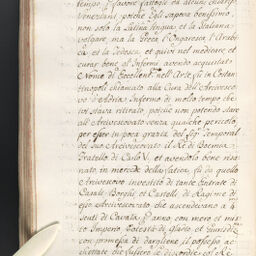 tempo p. favore fattogli da alcuni
Veneziani, poiche Egli sapeva benissimo,
non solo la Latina lingua, et la Italiana
volgare, ma la Greca, l'Ongaresca, l'Arabi-
ca, et la Tedesca, et quivi nel medicare et
curar bene gl'Infermi avendo acquistato
Nome di Eccellent. nell'Arte, fù in Costan-
tinopoli chiamato alla Cura dell'Arcivesco-
vo d'Adria Infermo di molto tempo che
ivi stava ritirato, poiche non poteva stare
all'Arcivescovato senza qualche pericolo,
per esser in poca grazia del Sig. Temporal
del suo Arcivescovato il Re di Boemia
Fratello di Carlo V. et avendolo bene risa-
nato, in mercede della fatica, fù da quello
Arcivescovo investito di tante Entrate di
Casali Borghi et Castelli di Ragione di
esso Arcivescovato che ascendevano a
Scuti di Cavata p. anno con mero et mis-
to Imperio Potestà di Gladio, et Giuridiz.
con promessa di dargliene il possesso ac-
chettate che fussero le discordie col Re